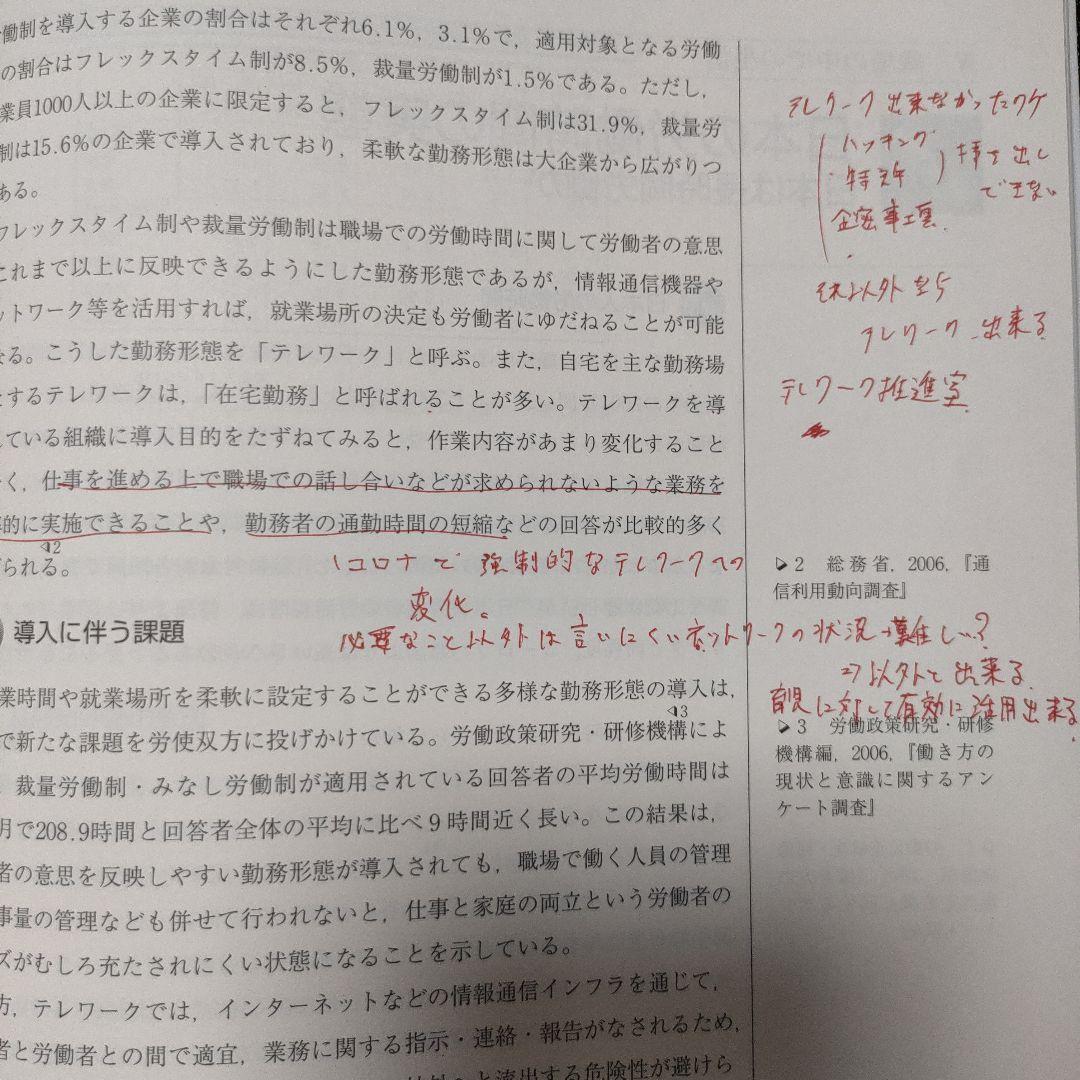 働制を導入する企業の割合はそれぞれ6.1%，3.1%で，適用対象となる労働
の割合はフレックスタイム制が8.5%，裁量労働制が1.5%である。ただし，
業員1000人以上の企業に限定すると，フレックスタイム制は31.9%，裁量労
制は15.6%の企業で導入されており，柔軟な勤務形態は大企業から広がりつ
ある。
フレックスタイム制や裁量労働制は職場での労働時間に関して労働者の意思
これまで以上に反映できるようにした勤務形態であるが，情報通信機器や
ットワーク等を活用すれば，就業場所の決定も労働者にゆだねることが可能
なる。こうした勤務形態を「テレワーク」と呼ぶ。また，自宅を主な勤務場
とするテレワークは，「在宅勤務」と呼ばれることが多い。テレワークを導
している組織に導入目的をたずねてみると，作業内容があまり変化すること
く，仕事を進める上で職場での話し合いなどが求められないような業務を
率的に実施できることや，勤務者の通勤時間の短縮などの回答が比較的多く
2
られる。
コロナで強制的なテレワークへの
変化。
必要なこと以外は言いにくいネットワークの状況→難しい？
以外と出来る
育児に対して有効に活用出来る
導入に伴う課題
業時間や就業場所を柔軟に設定することができる多様な勤務形態の導入は，
3
で新たな課題を労使双方に投げかけている。労働政策研究・研修機構によ
，裁量労働制・みなし労働制が適用されている回答者の平均労働時間は
月で208.9時間と回答者全体の平均に比べ９時間近く長い。この結果は，
者の意思を反映しやすい勤務形態が導入されても，職場で働く人員の管理
事量の管理なども併せて行われないと，仕事と家庭の両立という労働者の
ズがむしろ充たされにくい状態になることを示している。
方，テレワークでは，インターネットなどの情報通信インフラを通じて，
者と労働者との間で適宜，業務に関する指示・連絡・報告がなされるため，
と流出する危険性が避けら
テレワーク出来なかったワケ
ハッキング
・特許
企密事項
持ち出し
できない
それ以外なら
テレワーク出来る
テレワーク推進室
▷2　総務省，2006，『通
信利用動向調査』
▷3　労働政策研究・研修
機構編，2006，『働き方の
現状と意識に関するアン
ケート調査』